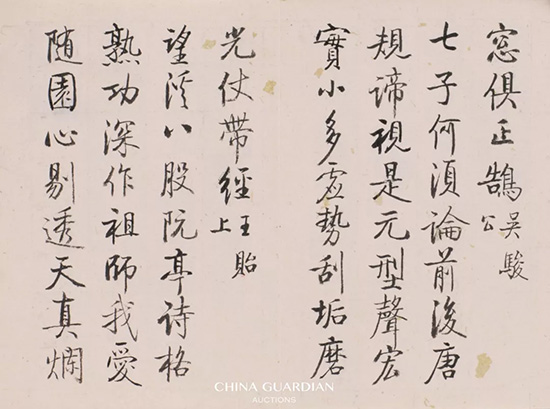 窓俱正鵠吳駿公
七子何須論前後唐
規諦視是元型聲宏
實小多虛勢刮垢磨
光仗帶經王貽上
望溪八股阮亭诗格
熟功深作祖師我愛
随園心剔透天真爛
CHINA GUARDIAN
AUCTIONS